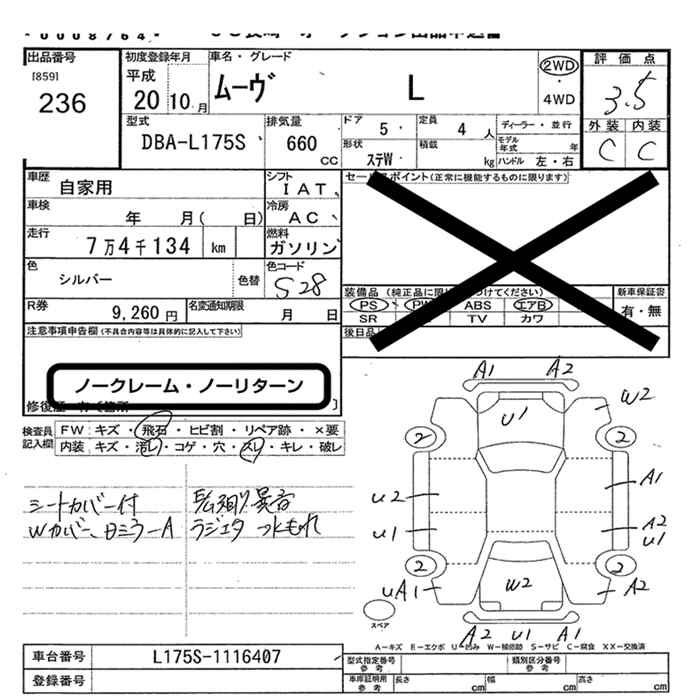 出品番号
[859]
236
初度登録年月
平成
20 10 月
車名・グレード
ムーヴ L
2WD
・
4WD
評価点
3.5
外装 内装
C C
型式
DBA-L175S
排気量
660
CC
ドア 5
定員 4 人
ディーラー・並行
モデル年式 年
形状 ステW
積載 kg
ハンドル 左・右
車歴 自家用
シフト IAT
セールスポイント(正常に機能するものに限ります)
車検 年 月( 日)
冷房 AC
走行 7万4千134 km
燃料 ガソリン
色 シルバー 色替
色コード S28
R券 9,260 円
名変通知期限 月 日
装備品
PS PW ABS エアB
SR TV カワ
新車保証書
有・無
後日品
注意事項申告欄(不具合内容等は具体的に記入して下さい)
ノークレーム・ノーリターン
検査員記入欄
FW キズ・飛石・ヒビ割・リペア跡・×要
内装 キズ・汚レ・コゲ・穴・スレ・キレ・破レ
シートカバー付
Wカバー、ドミラーA
異音
ラジエタ 水もれ
A1 A2
U1
W2
2 2
A1
U2
A2
U1
U1
2 2
UA1
W2
A2
スペア
A2 U1 A1
A―キズ E―エクボ U―凹み W―補修跡 S―サビ C―腐食 XX―交換済
車台番号 L175S-1116407
登録番号
型式指定番号 参考
類別区分番号 参考
車庫証明用 参考
長さ cm
幅 cm
高さ cm